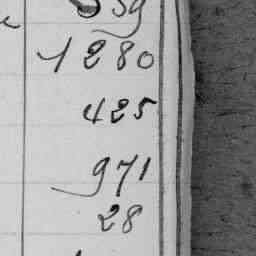 1280
425
971
28